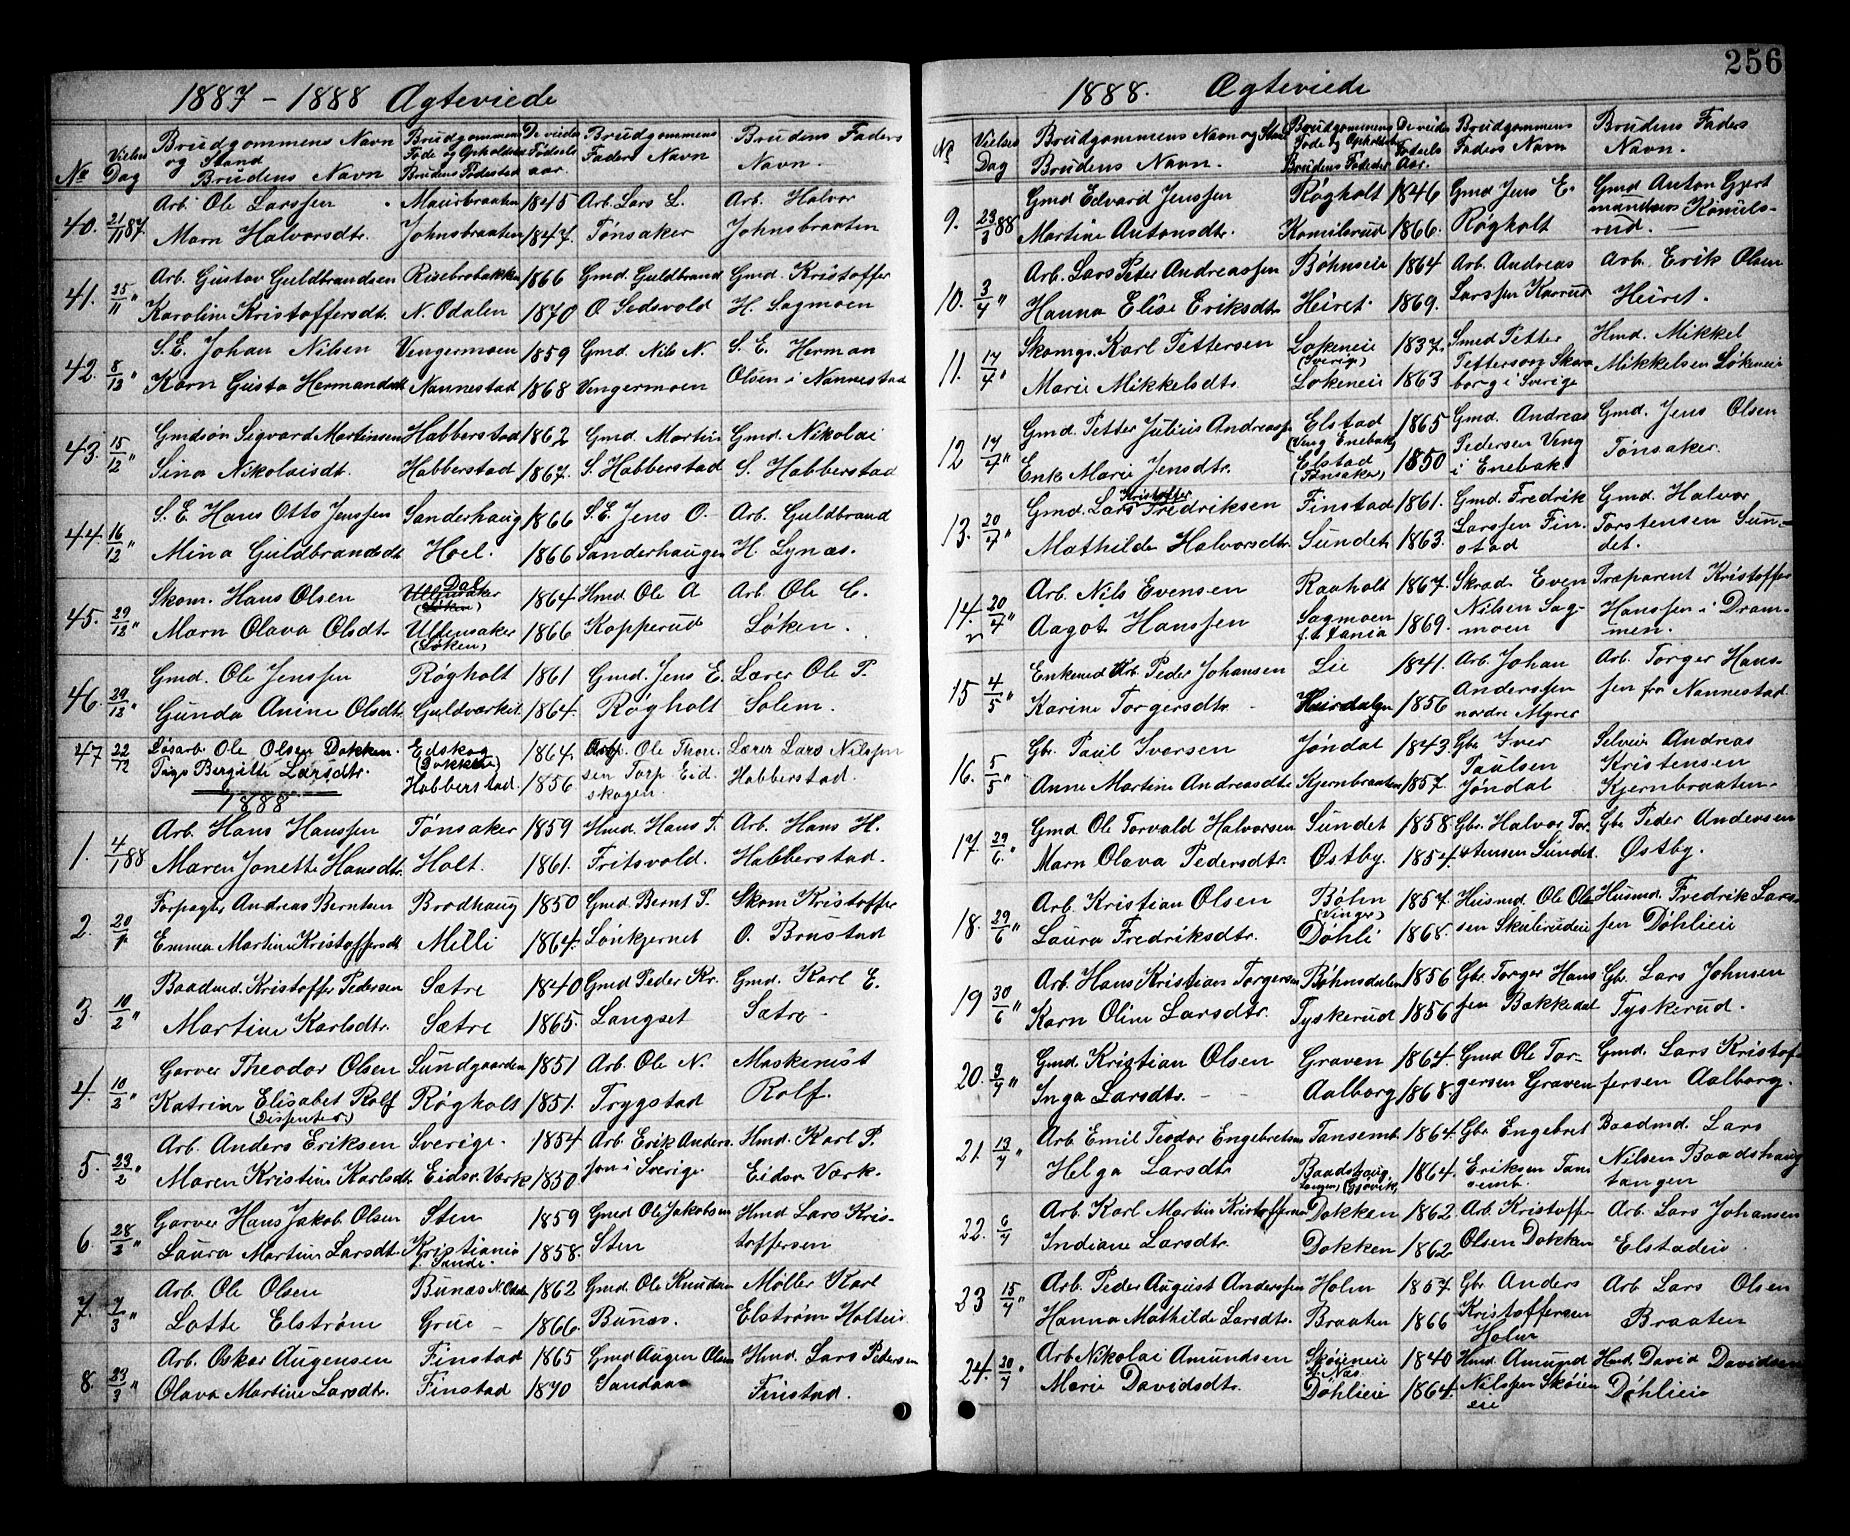 256
1887 - 1888 Ægteviede
No
Vielses Dag
Brudgommens Navn og Stand
Brudens Navn
Brudgommens Føde og Opholdssted
Brudens Fødested
De viedes Fødselsaar.
Brudgommens Faders Navn
Brudens Faders Navn.
40. 21/11 87. Arb. Ole Larssen Maurbraaten 1845 Arb. Lars L. Arb. Halvor
Marn Halvorsdtr. Johnsbraaten 1847. Tønsaker Johnsbraaten
41. 25/11 " Arb. Gustav Guldbrandsen Risebrobakken 1866 Gmd. Guldbrand Gmd. Kristoffer
Karoline Kristoffersdt. N. Odalen 1870 O. Sedsvold H. Sagmoen
42. 8/12 " S.E. Johan Nilsen Vengermoen 1859 Gmd. Nils N. S. E. Herman
Karn Gusta Hermansdt Nannestad 1868 Vengermoen Olsen i Nannestad
43. 15/12 " Gmdsøn Sigvard Martinsen Habberstad 1862 Gmd. Martin Gmd. Nikolai
Sina Nikolaisdt. Habberstad 1867. S. Habberstad S. Habberstad
44. 16/12 " S. E. Hans Otto Jenssen Sanderhaug 1866 S.E. Jens O. Arb. Guldbrand
Mina Guldbrandsdt. Hoel. 1866 Sanderhaugen H. Lynæs.
45. 29/12 " Skom. Hans Olsen Dal 1864 Hmd. Ole A Arb. Ole C.
Marn Olava Olsdtr. Ullensaker (Løken) 1866 Kopperud Løken.
46. 29/12 " Gmd. Ole Jenssen Røgholt 1861 Gmd. Jens E. Lærer Ole P.
Gunda Anine Olsdtr. Guldværket 1864. Røgholt Solem.
47 22/12 Løsarb. Ole Olsen Dokken. Eidskog (Dokken) 1864. Arb. Ole Thore- Lærer Lars Nilssen
Pige Bergitte Larsdtr. Habberstad. 1856 sen Torp Eid- Habberstad.
skogen.
1888
1. 4/1 88 Arb. Hans Hanssen Tønsaker 1859 Hmd. Hans T. Arb. Hans H.
Maren Jonette Hansdtr. Holt. 1861. Fritsvold. Habberstad.
2. 20/1 " Forpagter Andreas Berntsen Brodhaug 1850 Gmd. Bernt T. Skom Kristoffer
Emma Martine Kristoffersdt Milli 1864. Lønkjernet O. Brustad
3. 10/2 " Baadmd. Kristoffer Pedersen Sætre 1840 Gmd Peder Kr. Gmd. Karl E.
Martine Karlsdtr. Sætre 1865. Langset Sætre
4. 10/2 " Garver Theodor Olsen Sundgaarden 1851 Arb. Ole N. Maskinist
Katrine Elisabet Rolf Røgholt 1851. Trygstad Rolf.
(Dissenter.)
5. 23/2 " Arb. Anders Eriksen Sverige. 1854 Arb. Erik Anders- Hmd. Karl P.
Maren Kristine Karlsdt. Eidsv. Værk 1850 son i Sverige. Eidsv. Værk.
6. 28/2 " Garver Hans Jakob Olsen Sten 1859 Gmd Ole Jakobsen Hmd Lars Kris-
Laura Martine Larsdt. Kristiania 1858. Sten toffersen
7. 7/3 " Arb. Ole Olsen Bunæs N. Odalen 1862 Gmd. Ole Knudsen Møller Karl
Lotte Elstrøm Grue 1866. Bunæs. Elstrøm
8. 23/3 " Arb. Oskar Augensen Finstad 1865 Gmd Augen Olsen Hmd. Lars Pedersen
Olava Martine Larsdtr. Finstad 1870 Sandaa Finstad.
1888. Ægteviede
No
Vielses Dag
Brudgommens Navn og Stand
Brudens Navn.
Brudgommens Føde og Opholdssted
Brudens Fødested
De viedes Fødsels Aar.
Brudgommens Faders Navn
Brudens Faders Navn.
9. 23/3 88 Gmd Edvard Jenssen Røgholt 1846 Gmd Jens E. Gmd Anton Gjert
Martine Antonsdtr. Komilsrud 1866. Røgholt mandsens Komils-
rud.
10. 3/4 " Arb. Lars Peter Andreassen Bøhnseie 1864 Arb. Andreas Arb. Erik Olsen
Hanna Elise Eriksdtr Heiret. 1869. Larssen Karrud Heiret.
11. 17/4 " Skomgr. Karl Pettersen Løkeneie (Sverig) 1837. Smd Petter Hmd. Mikkel
Marie Mikkelsdtr. Løkeneie 1863 Petterson Skara- Mikkelsen Løkeneie
borg i Sverige
12 17/4 " Gmd. Petter Julius Andreass. Elstad (Veng Enebak) 1865 Gmd. Andreas Gmd. Jens Olsen
Enk Marie Jensdtr. Elstad (Tønsaker) 1850 Pedersen Veng Tønsaker.
i Enebak.
13. 20/4 " Gmd. Lars Kristoffer Fredriksen Finstad 1861. Gmd Fredrik Gmd. Halvor
Mathilde Halvorsdtr. Sundet 1863. Larssen Fin- Torstensen Sun-
stad det.
14. 20/4 " Arb. Nils Evensen Raaholt 1867. Skræd. Even Præparent Kristoffer
Aagot Hanssen Sagmoen 1869. Nilsen Sag- Hanssen i Dram-
moen men.
15 4/5 " Enkemd Arb. Peder Johansen Lie 1841. Arb. Johan Arb. Torger Hans-
Karine Torgersdtr. Heirdalen 1856 Anderssen sen fra Nannestad
nordre Myrer
16. 5/5 " Gbr. Paul Iversen Jøndal 1843 Gbr Iver Selveier Andreas
Anne Martine Andreasdtr Kjernbraaten 1857. Paulsen Kristensen
Jøndal Kjernbraaten
17. 29/6. " Gmd Ole Torvald Halvorsen Sundet 1858. Gbr. Halvor Tor- Gbr Peder Andersen
Marn Olava Pedersdtr. Østby. 1854. stensen Sundet. Østby.
18. 29/6 " Arb. Kristian Olsen Bøhn (Vinger) 1857. Husmd Ole Ole- Husmd. Fredrik Lars-
Laura Fredriksdtr. Døhli 1868. sen Skulerudeie sen Døhlieie
19 30/6 " Arb. Hans Kristian Torgersen Bøhnsdalen 1856 Gbr. Torger Hans Gbr. Lars Johnsen
Karn Oline Larsdtr. Tyskerud 1856 sen Bakkedal Tyskerud.
20. 3/7 " Gmd. Kristian Olsen Graven 1864. Gmd Ole Tor- Gmd. Lars Kristof-
Inga Larsdtr. Aalborg 1868. gersen Graven fersen Aalborg.
21. 13/7 " Arb. Emil Teodor Engebretsen Tansemb. 1864. Gbr Engebret Baadmd. Lars
Helga Larsdtr Baadshaug tangen (Gjøvik) 1864. Eriksen Tan- Nilsen Baadshaug
semb. tangen
22. 6/7 " Arb. Karl Martin Kristoffersen Dokken 1862 Arb. Kristoffer Arb. Lars Johansen
Indiane Larsdtr. Dokken 1862 Olsen Dokken Elstadeie
23 15/7 " Arb. Peder August Anderssen Holm 1857 Gbr Anders Arb Lars Olsen
Hanna Mathilde Larsdtr. Braaten 1866 Kristoffersen Braaten
Holm
24. 20/7 " Arb Nikolai Amundsen Skøieneie N. Næs. 1840 Hmd. Amund Hmd. David Davidsen
Marie Davidsdtr. Døhlieie 1864. Nilssen Skøien Døhlieie
eie